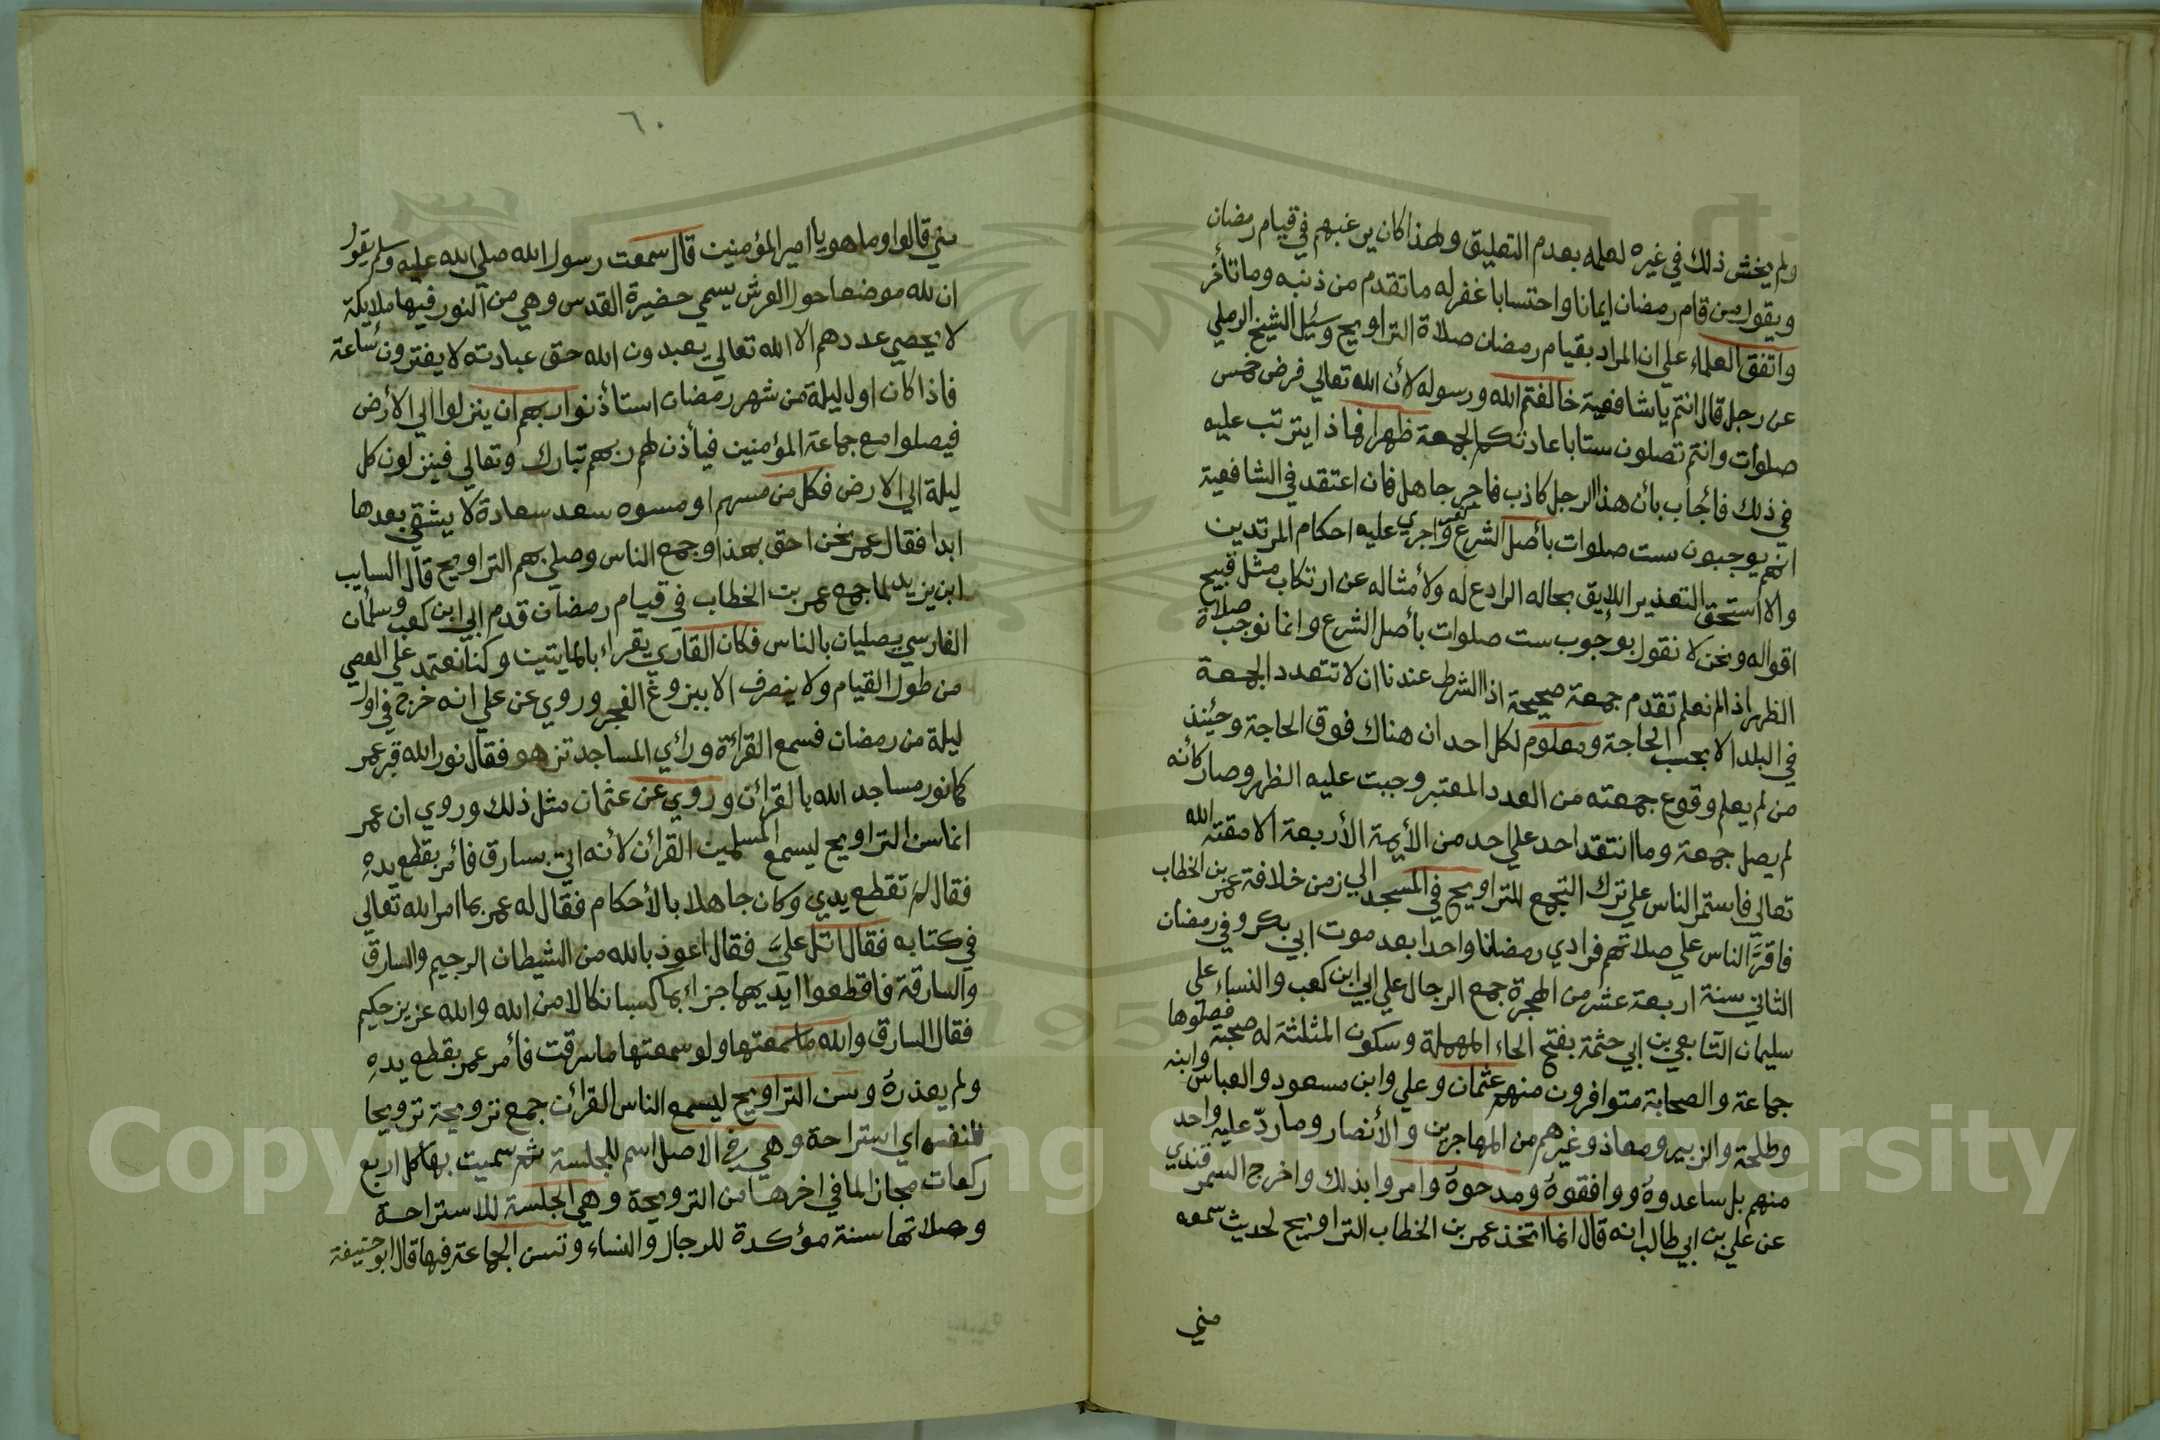 ولم يخش ذلك في غيره لعلمه بعدم التعليق ولهذا كان يرغبهم في قيام رمضان
ويقول من قام رمضان ايمانا واحتسابا غفرله ما تقدم من ذنبه وما تأخر
واتفق العلماء علي ان المراد بقيام رمضان صلاة التراويح وسُئِل الشيخ الرملي
عن رجل قال انتم يا شافعية خالفتم الله ورسوله لأن الله تعالي فرض خمس
صلوات وانتم تصلون ستا باعادتكم الجمعة ظهرا فماذا يترتب عليه
في ذلك فأجاب بأن هذا الرجل كاذب فاجر جاهل فان اعتقد في الشافعية
انهم يوجبون ست صلوات بأصل الشرع كفر واجري عليه احكام المرتدين
والا استحق التعذير اللايق بحاله الرادع له ولأمثاله عن ارتكاب مثل قبيح
اقواله ونحن لا نقول بوجوب ست صلوات بأصل الشرع وانما نوجب صلاة
الظهر اذا لم نعلم تقدم جمعة صحيحة اذ الشرط عندنا ان لا تتعدد الجمعة
في البلد الا بحسب الحاجة ومعلوم لكل احد ان هناك فوق الحاجة وحينئذ
من لم يعلم وقوع جمعته من العدد المعتبر وجبت عليه الظهر وصار كأنه
لم يصل جمعة وما انتقد احد علي احد من الأيمة الأربعة الا مقته الله
تعالي فاستمر الناس علي ترك التجمع للتراويح في المسجد الي زمن خلافة عمر بن الخطاب
فاقرّ الناس علي صلاتهم فرادي رمضانا واحدا بعد موت ابي بكر وفي رمضان
الثاني سنة اربعة عشر من الهجرة جمع الرجال علي ابي ابن كعب والنساء علي
سليمان التابعي بن ابي حثمة بفتح الحاء المهملة وسكون المثلثة له صحبة فصلوها
جماعة والصحابة متوافرون منهم عثمان وعلي وابن مسعود والعباس وابنه
وطلحة والزبير ومعاذ وغيرهم من المهاجرين والأنصار وما ردّ عليه واحد
منهم بل ساعدوه ووافقوه ومدحوه وامروا بذلك واخرج السمرقندي
عن علي بن ابي طالب انه قال انما اتخذ عمر بن الخطاب التراويح لحديث سمعه
مني
٦٠
مني قالوا وما هو يا امير المؤمنين قال سمعت رسول الله صلي الله عليه وسلم يقول
ان لله موضعا حول العرش يسمي حضيرة القدس وهي من النور فيها ملايكة
لا يحصي عددهم الا الله تعالي يعبدون الله حق عبادته لا يفترون ساعة
فاذا كان اول ليلة من شهر رمضان استأذنوا ربهم ان ينزلوا الي الأرض
فيصلوا مع جماعة المؤمنين فيأذن لهم ربهم تبارك وتعالي فينزلون كل
ليلة الي الارض فكل من مسهم او مسوه سعد سعادة لا يشقي بعدها
ابدا فقال عمر نحن احق بهذا وجمع الناس وصلي بهم التراويح قال السايب
ابن يزيد لما جمع عمر بن الخطاب في قيام رمضان قدم ابي ابن كعب وسلمان
الفارسي يصليان بالناس فكان القاري يقراء بالمايتين وكنا نعتمد علي العصي
من طول القيام ولا ينصرف الا ببزوغ الفجر وروي عن علي انه خرج في اول
ليلة من رمضان فسمع القراءة ورأي المساجد تزهو فقال نور الله قبر عمر
كما نور مساجد الله بالقرأن وروي عن عثمان مثل ذلك وروي ان عمر
انما سن التراويح ليسمع المسلمين القرأن لأنه اتي بسارق فأمر بقطع يده
فقال لم تقطع يدي وكان جاهلا بالأحكام فقال له عمر بما امر الله تعالي
في كتابه فقال اتل عليّ فقال اعوذ بالله من الشيطان الرجيم والسارق
والسارقة فاقطعوا ايديهما جزاء بما كسبا نكالا من الله والله عزيز حكيم
فقال السارق والله ما سمعتها ولو سمعتها ما سرقت فأمر عمر بقطع يده
ولم يعذره وسن التراويح ليسمع الناس القرأن جمع ترويحة ترويحا
للنفس اي استراحة وهي في الاصل اسم للجلسة ثم سميت بها كل اربع
ركعات مجازا لما في اخرها من الترويحة وهي الجلسة للاستراحة
وصلاتها سنة مؤكدة للرجال والنساء وتسن الجماعة فيها قال ابو حنيفة
Copyright © King Saud University
1957